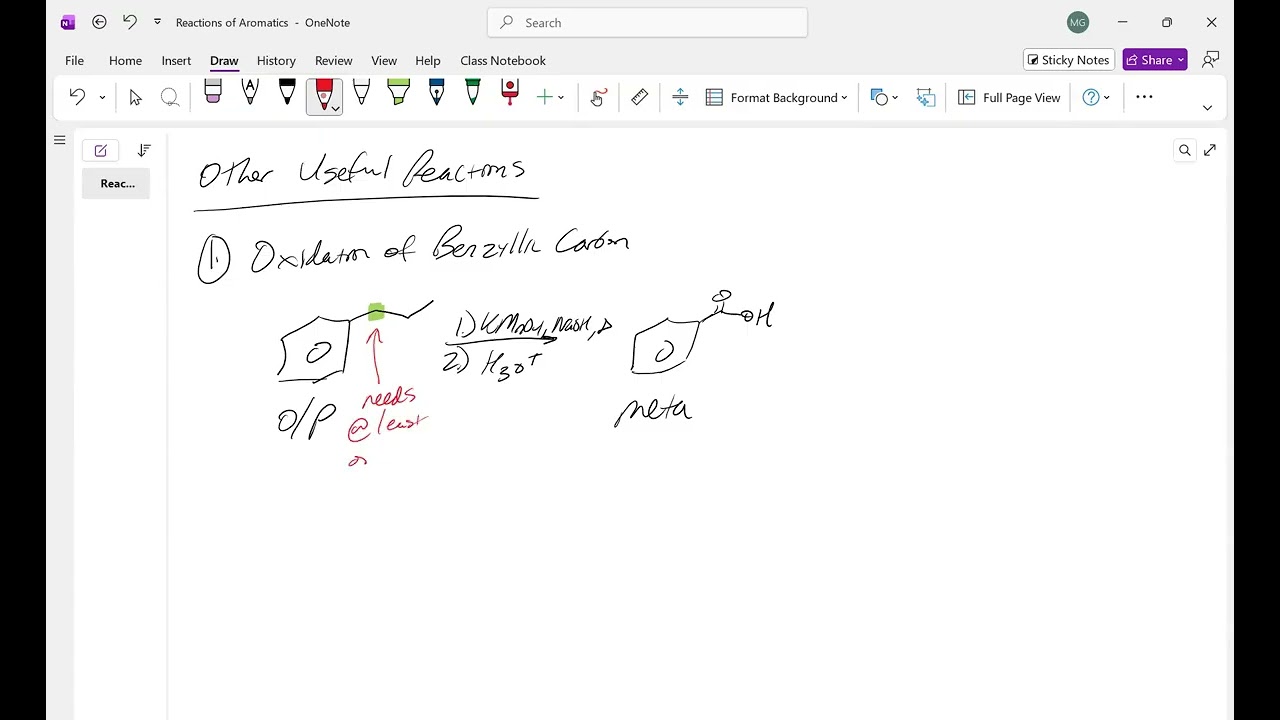 Reactions of Aromatics - OneNote
Search
MG
File Home Insert Draw History Review View Help Class Notebook
Sticky Notes
Share
Format Background
Full Page View
Reac...
Other Useful Reactions
1. Oxidation of Benzyllic Carbon
1.) KMnO4, NaOH, Δ
2.) H3O+
O
OH
O/P
needs
@ least
meta